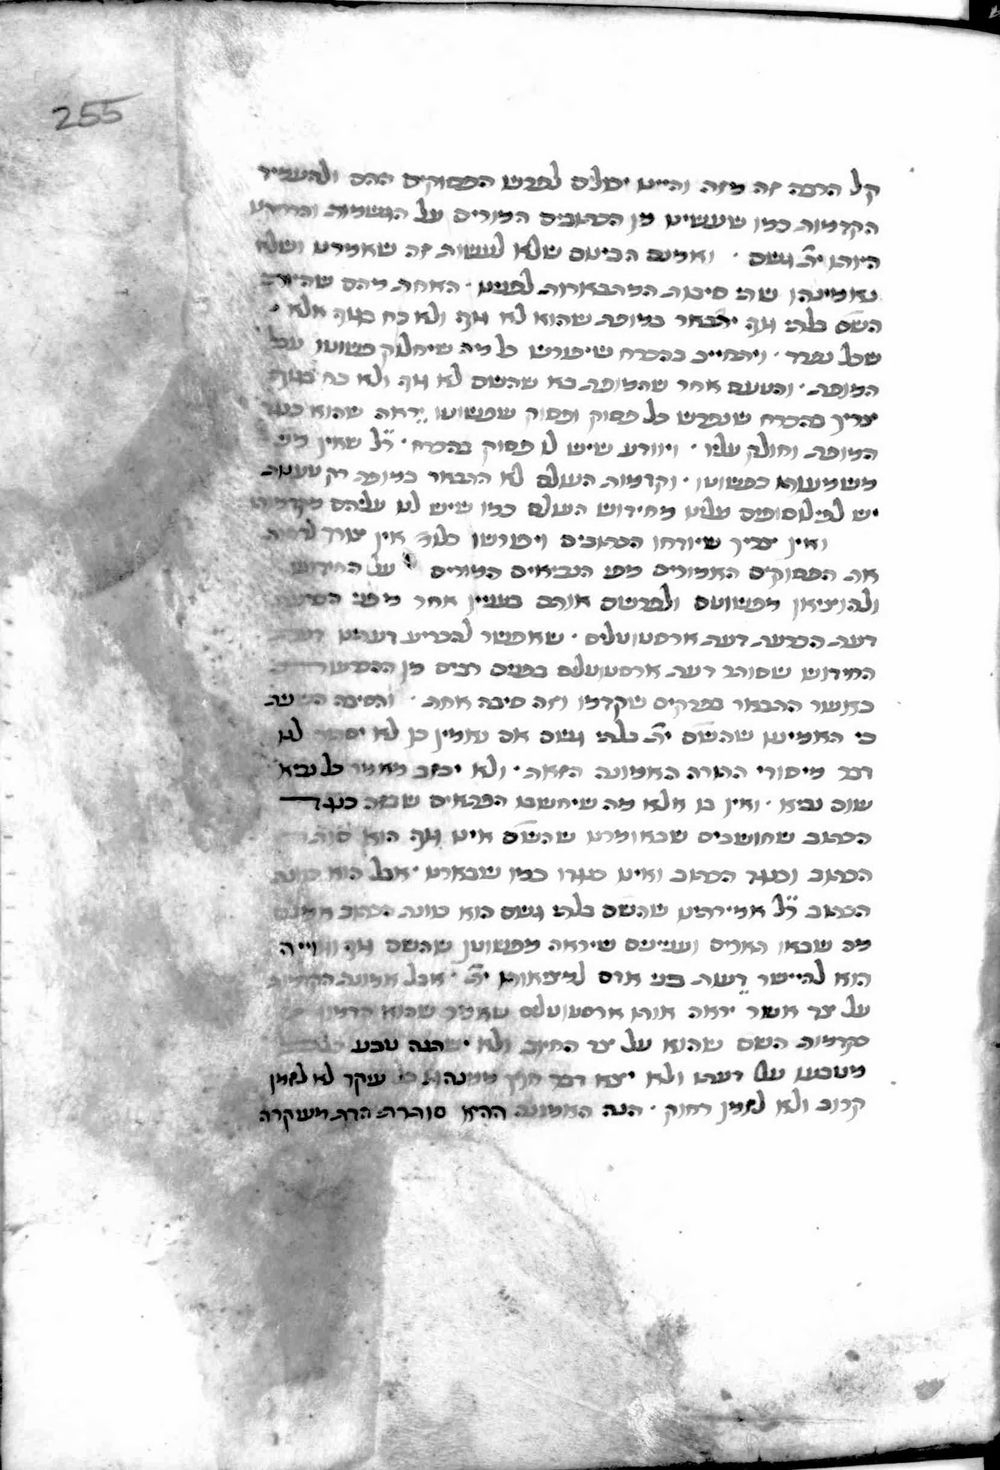 255
קל הרבה זה מזה והיינו יכולים לפרש הפסוקים ההם ולהעמיד
הקדמות כמו שעשינו מן הכתובים המורים על הגשמות והרחקנו
היותו ית׳ גשם · ואמנם הביאנו שלא לעשות זה שאמרנו ושלא
נאמינהו שתי סיבות המתבארות לפנינו · האחת מהם שהיות
השם בלתי גוף יתבאר במופת שהוא לא גוף ולא כח בגוף אלא
שכל נפרד · ויתחייב בהכרח שיפורש כל מה שיחלוק פשוטו על
המופת · והטעם אחר שהמופת בא שהשם לא גוף ולא כח בגוף
יצריך בהכרח שנפרש כל פסוק ופסוק שפשוטו יראה שהוא כנגד
המופת וחולק עליו · ויוודע שיש לו פסוק בהכרח · ר״ל שאין
משמעותו כפשוטו · וקדמות העולם לא התבאר במופת רק טענות
יש לפילוסופים עלינו מחידוש העולם כמו שיש לנו עליהם מקדמותו
ואין צריך שיודחו הכתובים ויפורשו כלו׳ אין צורך לדחות
את הפסוקים האמורים מפי הנביאים המורים על החידוש
ולהוציאן מפשוטם ולפרשם אותם בעניין אחר מפני הסיבה
דעת הכרעת דעת ארסטוטלים · שאפשר להכריע דעתנו דעת
החידוש שסותר דעת ארסטוטלים בפנים רבים מן ההכרעה
כאשר התבאר בפרקים שקדמו וזה סיבה אחת · והסיבה השנית
כי האמיננו שהשם ית׳ בלתי גשם אם נאמין כן לא יסתר לנו
דבר מיסודי התורה האמונה הזאת · ולא יכזב מאמר כל נביא
שום נביא · ואין בו אלא מה שיחשבו הפתאים שבזה כנגד
הכתוב שחושבים שבאומרנו שהשם אינו גוף הוא סותר
הכתוב וכנגד הכתוב ואינו כנגדו כמו שבארנו · אבל הוא כוונת
הכתוב ר״ל אמירתינו שהשם בלתי גשם הוא כוונת הכתוב אמנם
מה שבאו תארים ועניינים שיראה מפשוטן שהשם גוף וגוייה
הוא להיישר דעת בני אדם למציאותו ית׳ · אבל אמונת הקדמות
על צד אשר יראה אותו ארסטוטלים שאמר שהוא קדמון
כקדמות השם שהוא על צד החיוב ולא ישתנה טבע
מטבעו על דעתו ולא יצא דבר חוץ ממנהגו כל עיקר לא לזמן
קרוב ולא לזמן רחוק · הנה האמונה ההיא סותרת הדת מעיקרה